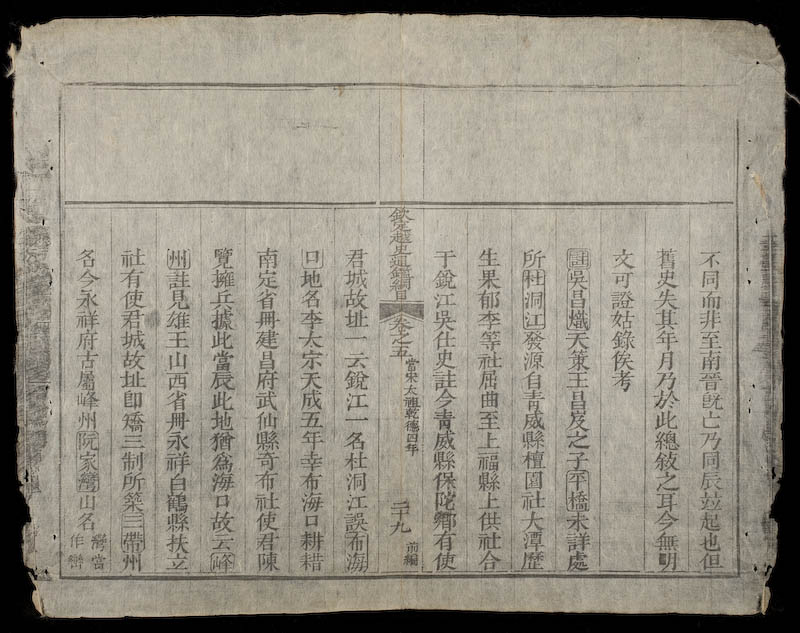 不同而非至南晉既亡乃同辰竝起也但
舊史失其年月乃於此總敘之耳今無明
文可證姑錄俟考
註吳昌熾天策王昌岌之子平橋未詳處
所杜洞江發源自青威縣檀園社大潭歷
生果郁李等社屈曲至上福縣上供社合
于銳江吳仕史註今青威縣保陀鄉有使
欽定越史通鑑綱目 卷之五 當宋太祖乾德四年 二十九 前編
君城故址一云銳江一名杜洞江誤布海
口地名李太宗天成五年幸布海口耕耤
南定省冊建昌府武仙縣奇布社使君陳
覽擁兵據此當辰此地猶爲海口故云峰
州註見雄王山西省冊永祥白鶴縣扶立
社有使君城故址卽矯三制所築三帶州
名今永祥府古屬峰州阮家灣山名灣當作巒